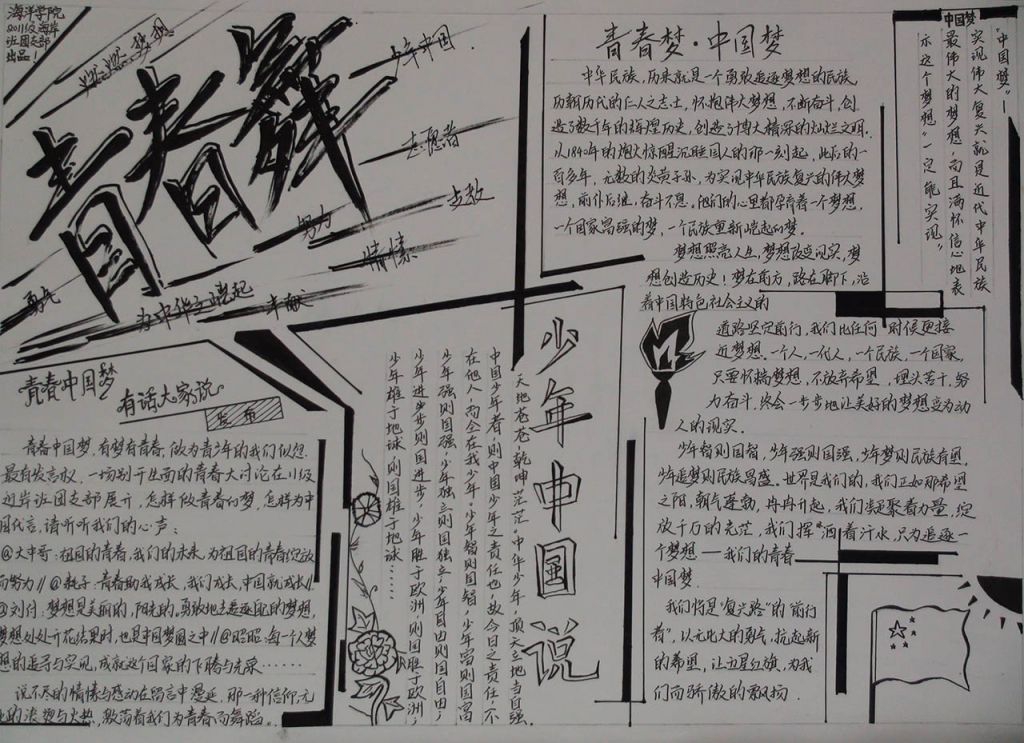 海洋学院
2011级海岸
班团支部
出品！
燃燃梦想
青春舞
少年中国
志愿者
努力
情愫
为中华之崛起
奉献
青春中国梦
有话大家说
发布
青春中国梦，有梦有青春，做为青少年的我们似想
最有发言权，一场别开生面的青春大讨论在11级
海岸班团支部展开，怎样做青春的梦，怎样为中
国代言，请听听我们的心声：
祖国的青春，我们的未来，为祖国的青春绽放
而努力//
青春助我成长，我们成长，中国就成长//
梦想是美丽的，阳光的，勇敢地去追逐我的梦想，
梦想处处开花结果时，也是中国梦圆之中//
每一个人梦
想的追寻与实现，成就这个国家的
说不尽的情愫与感动在留言中蔓延，那一种信仰，无
激荡着我们为青春而舞蹈。
少年中国说
天地苍苍，乾坤茫茫，中华少年，顶天立地当自强。
中国少年者，则中国少年之责任也，故今日之责任，不
在他人，而全在我少年，少年智则国智，少年富则国富，
少年强则国强，少年独立则国独立，少年自由则国自由，
少年进步则国进步，少年胜于欧洲，则国胜于欧洲，
少年雄于地球，则国雄于地球……
青春梦·中国梦
中华民族，历来就是一个勇敢追逐梦想的民族。
历朝历代的仁人之志士，怀抱伟大梦想，不断奋斗，创
造了数千年的辉煌历史，创造了博大精深的灿烂文明。
从1840年的炮火惊醒沉睡国人的那一刻起，此后的一
百多年，无数的炎黄子孙，为实现中华民族复兴的伟大梦
想，前仆后继，奋斗不息。他们的心里都孕育着一个梦想，
一个国家富强的梦，一个民族重新崛起的梦。
梦想照亮人生，梦想改变现实，梦
想创造历史！梦在前方，路在脚下，沿
着中国特色社会主义的
道路坚定前行，我们比任何 时候更接
近梦想。一个人，一代人，一个民族，一个国家，
只要怀揣梦想，不放弃希望，埋头苦干，努
力奋斗，终会一步步地让美好的梦想变为动
人的现实。
少年智则国智，少年强则国强，少年梦则民族有望，
少年追梦则民族昌盛。世界是我们的，我们正如那希望
之阳，朝气蓬勃，冉冉升起，我们凝聚着力量，绽
放千万的光芒，我们挥“洒”着汗水，只为追逐一
个梦想——我们的青春
中国梦。
我们将是“复兴路”的“前行
者”，以无比大的勇气，抗起新
的希望，让五星红旗，为我
们而骄傲的飘扬.
中国梦
“中国梦”—
实现伟大复兴就是近代中华民族
最伟大的梦想，而且满怀信心地表
示这个梦想“一定能实现”